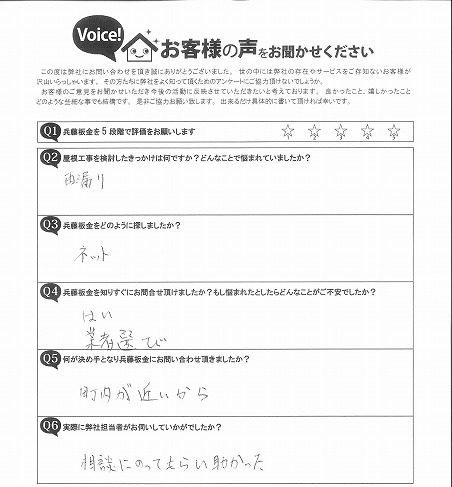 Voice!
お客様の声をお聞かせください
この度は弊社にお問い合わせを頂き誠にありがとうございました。世の中には弊社の存在やサービスをご存知ないお客様が
沢山いらっしゃいます。その方たちに弊社をよく知って頂くためのアンケートにご協力頂けないでしょうか。
お客様のご意見をお聞かせいただき今後の活動に反映させていただきたいと考えております。良かったこと、嬉しかったこと
どのような些細な事でも結構です。是非ご協力お願い致します。出来るだけ具体的に書いて頂ければ幸いです。
Q1 兵藤板金を5段階で評価をお願いします ☆1 ☆2 ☆3 ☆4 ☆5
Q2 屋根工事を検討したきっかけは何ですか?どんなことで悩まれていましたか?
雨漏り
Q3 兵藤板金をどのように探しましたか?
ネット
Q4 兵藤板金を知りすぐにお問合せ頂けましたか?もし悩まれたとしたらどんなことがご不安でしたか?
はい
業者選び
Q5 何が決め手となり兵藤板金にお問い合わせ頂きましたか?
町内が近いから
Q6 実際に弊社担当者がお伺いしていかがでしたか?
相談にのってもらい助かった